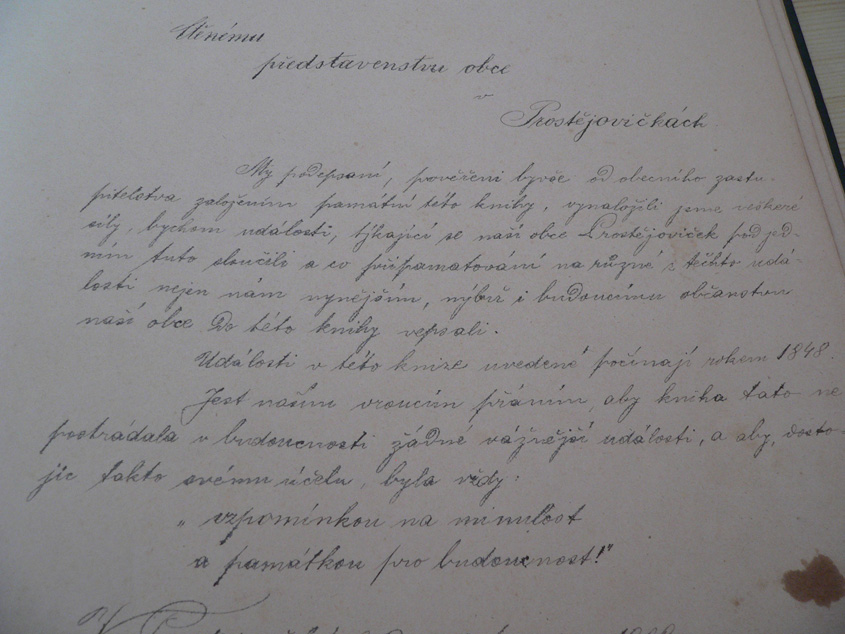 Ctěnému
představenstvu obce
v
Prostějovičkách
My podepsaní, pověřeni byvše od obecního zastu-
pitelstva založením památní této knihy, vynaložili jsme veškeré
síly, bychom události, týkající se naší obce Prostějoviček pod jed-
ním tuto sloučili a co připamatování na různé z těchto udá-
losti nejen nám nynějším, nýbrž i budoucímu občanstvu
naší obce Do této knihy vepsali.
Události v této knize uvedené počínají rokem 1848.
Jest naším vroucím přáním, aby kniha tato ne
postrádala v budoucnosti žádné vážnější události, a aby, dosto-
jíc takto svému účelu, byla vždy:
„ vzpomínkou na minulost
a památkou pro budoucnost!"
V